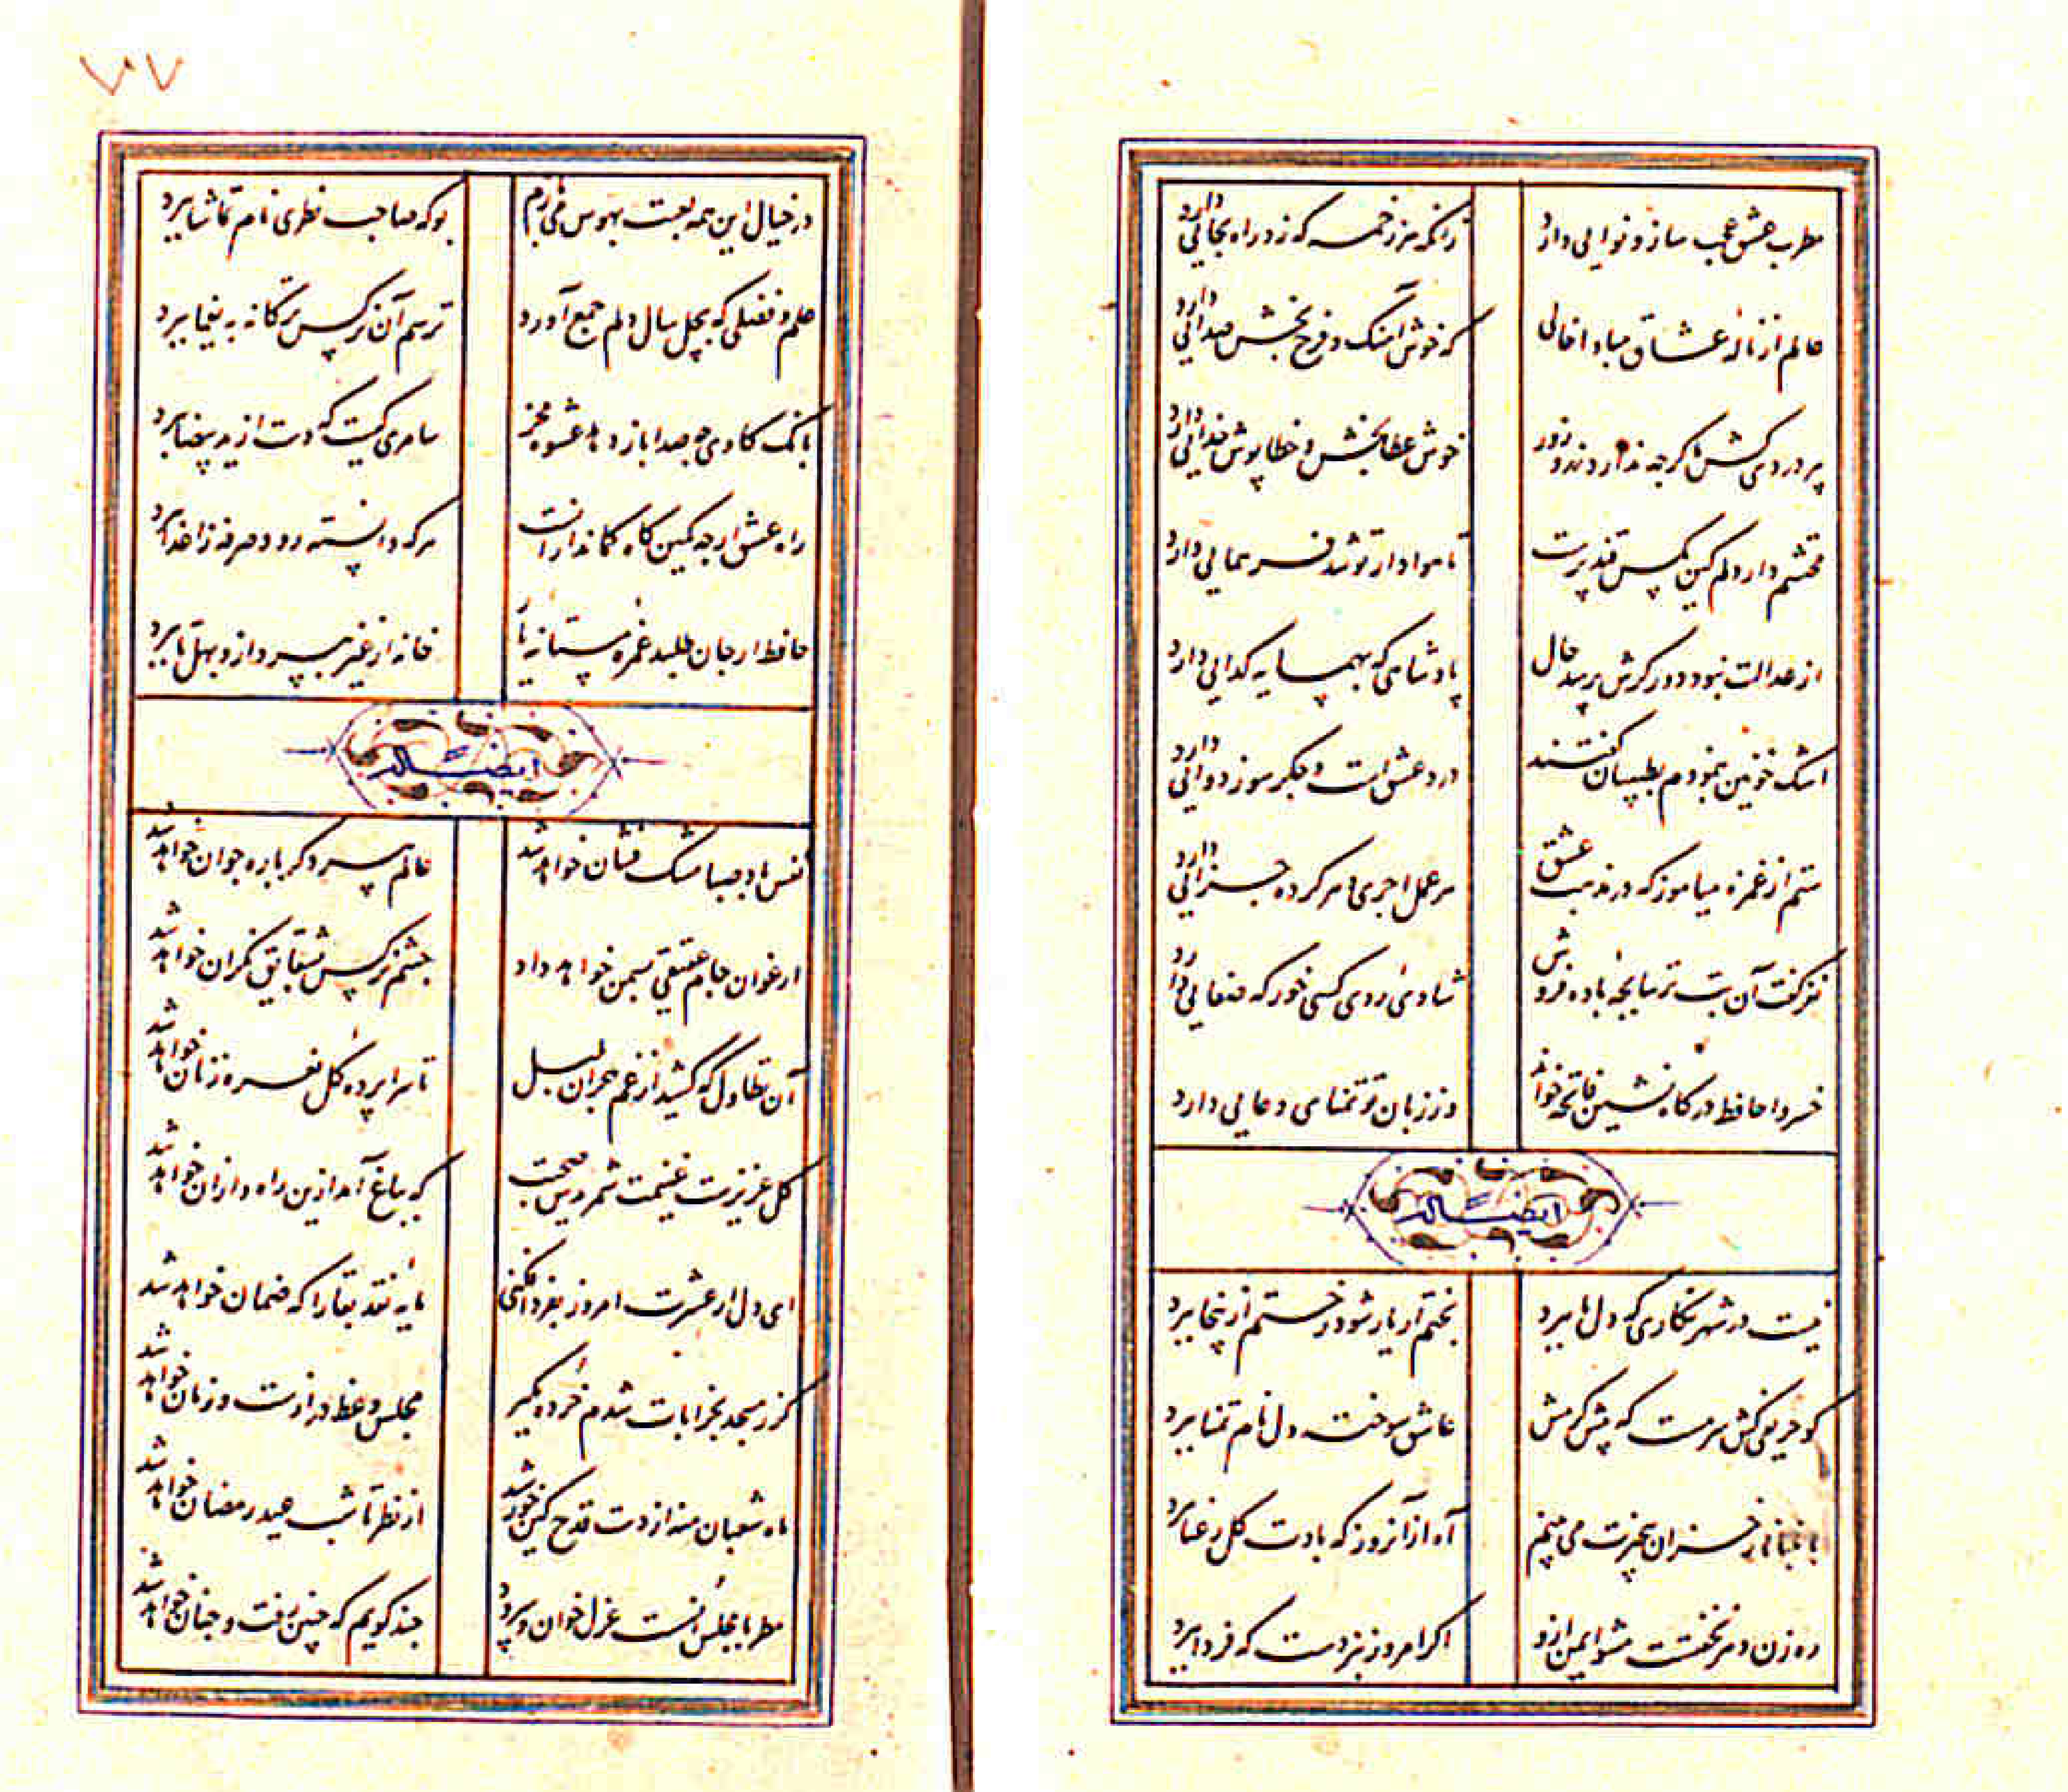 مطرب عشق عجب ساز و نوایی دارد
زانکه هر زخمه که زد راه بجائی دارد
عالم از نالهٔ عشاق مبادا خالی
که خوش آهنگ و فرح بخش صدائی دارد
پیر دردی کش ما گرچه ندارد زر و زور
خوش عطا بخش و خطا پوش خدائی دارد
محتشم دار دلم کین مگس قند پرست
تا هوادار تو شد فر همایی دارد
از عدالت نبود دور گرش پرسد حال
پادشاهی که بهمسایه گدایی دارد
اشک خونین بنمودم بطبیبان گفتند
درد عشق است و جگر سوز دوائی دارد
ستم از غمزه میاموز که در مذهب عشق
هر عمل اجری و هر کرده جزائی دارد
نغز گفت آن بت ترسا بچه باده فروش
شادی روی کسی خور که صفایی دارد
خسروا حافظ درگاه نشین فاتحه خواند
وز زبان تو تمنای دعایی دارد
ایضاً له
نیست در شهر نگاری که دل ما ببرد
بختم ار یار شود رختم ازینجا ببرد
کو حریفی کش سرمست که پیش کرمش
عاشق سوخته دل نام تمنا ببرد
باغبانا ز خزان بیخبرت می بینم
آه از آنروز که بادت گل رعنا ببرد
ره زن دهر نخفتست مشو ایمن ازو
اگر امروز نبردست که فردا ببرد
۷۷
در خیال این همه لعبت بهوس می بازم
بو که صاحب نظری نام تماشا ببرد
علم و فضلی که بچل سال دلم جمع آورد
ترسم آن نرگس ترکانه به یغما ببرد
بانک گاوی چه صدا باز دهد عشوه مخر
سامری کیست که دست از ید بیضا ببرد
راه عشق ار چه کمین گاه کماندارانست
هر که دانسته رود صرفه ز اعدا ببرد
حافظ ار جان طلبد غمزه مستانه یار
خانه از غیر بپرداز و بهل تا ببرد
ایضاً له
نفس باد صبا مشک فشان خواهد شد
عالم پیر دگر باره جوان خواهد شد
ارغوان جام عقیقی بسمن خواهد داد
چشم نرگس بشقایق نگران خواهد شد
آن تطاول که کشید از غم هجران بلبل
تا سراپرده گل نعره زنان خواهد شد
گل عزیزست غنیمت شمریدش صحبت
که بباغ آمد ازین راه و از آن خواهد شد
ای دل ار عشرت امروز بفردا فکنی
مایهٔ نقد بقا را که ضمان خواهد شد
گر ز مسجد بخرابات شدم خرده مگیر
مجلس وعظ درازست و زمان خواهد شد
ماه شعبان منه از دست قدح کین خورشید
از نظر تا شب عید رمضان خواهد شد
مطربا مجلس انست غزل خوان و سرود
چند گویم که چنین رفت و چنان خواهد شد